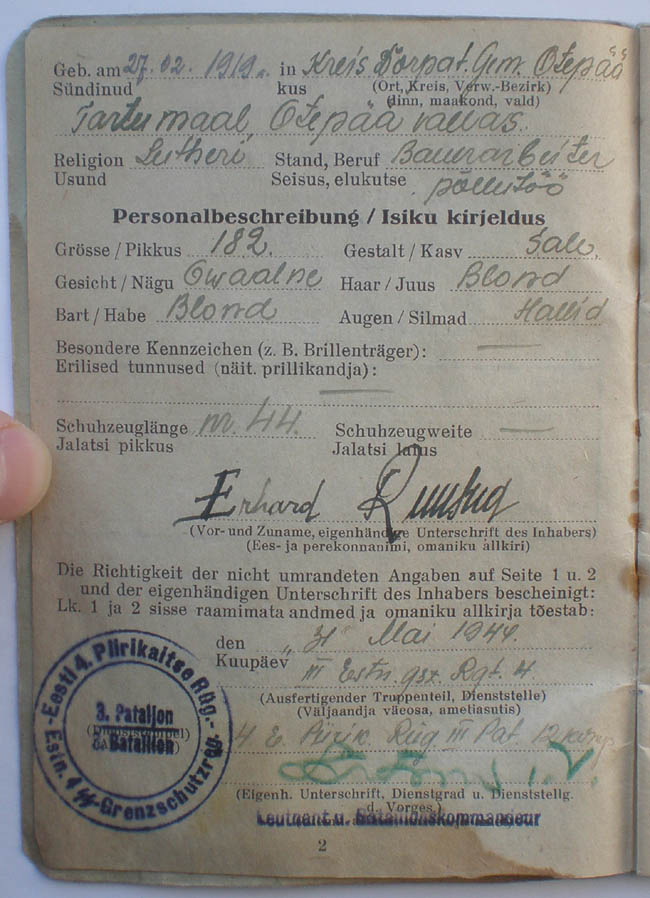 Geb. am 27. 02. 1919 a. in Kreis Dorpat. Gem. Otepää
Sündinud kus (Ort, Kreis, Verw.-Bezirk)
(linn, maakond, vald)
Tartumaal, Otepää vallas.
Religion Lutheri Stand, Beruf Bauerarbeiter
Usund Seisus, elukutse põllutöö
Personalbeschreibung / Isiku kirjeldus
Grösse / Pikkus 182. Gestalt / Kasv Sale,
Gesicht / Nägu Owaalne Haar / Juus Blond
Bart / Habe Blond Augen / Silmad Hallid
Besondere Kennzeichen (z. B. Brillenträger): —
Erilised tunnused (näit. prillikandja):
—
Schuhzeuglänge nr. 44. Schuhzeugweite —
Jalatsi pikkus Jalatsi laius
Erhard
(Vor- und Zuname, eigenhändige Unterschrift des Inhabers)
(Ees- ja perekonnanimi, omaniku allkiri)
Die Richtigkeit der nicht umrandeten Angaben auf Seite 1 u. 2
und der eigenhändigen Unterschrift des Inhabers bescheinigt:
Lk. 1 ja 2 sisse raamimata andmed ja omaniku allkirja tõestab:
den Mai 1944.
Kuupäev III Estn. gsz. Rgt. 4
(Ausfertigender Truppenteil, Dienststelle)
(Väljaandja väeosa, ametiasutis)
4 E. Piirik. Rüg III Pat. 12
(Eigenh. Unterschrift, Dienstgrad u. Dienststellg.
d. Vorges.)
Leutnant u. Bataillonskommandeur
Eesti 4. Piirikaitse Rüg.-
Estn. 4 SS-Grenzschutzreg.-
3. Pataljon
Bataillon
2